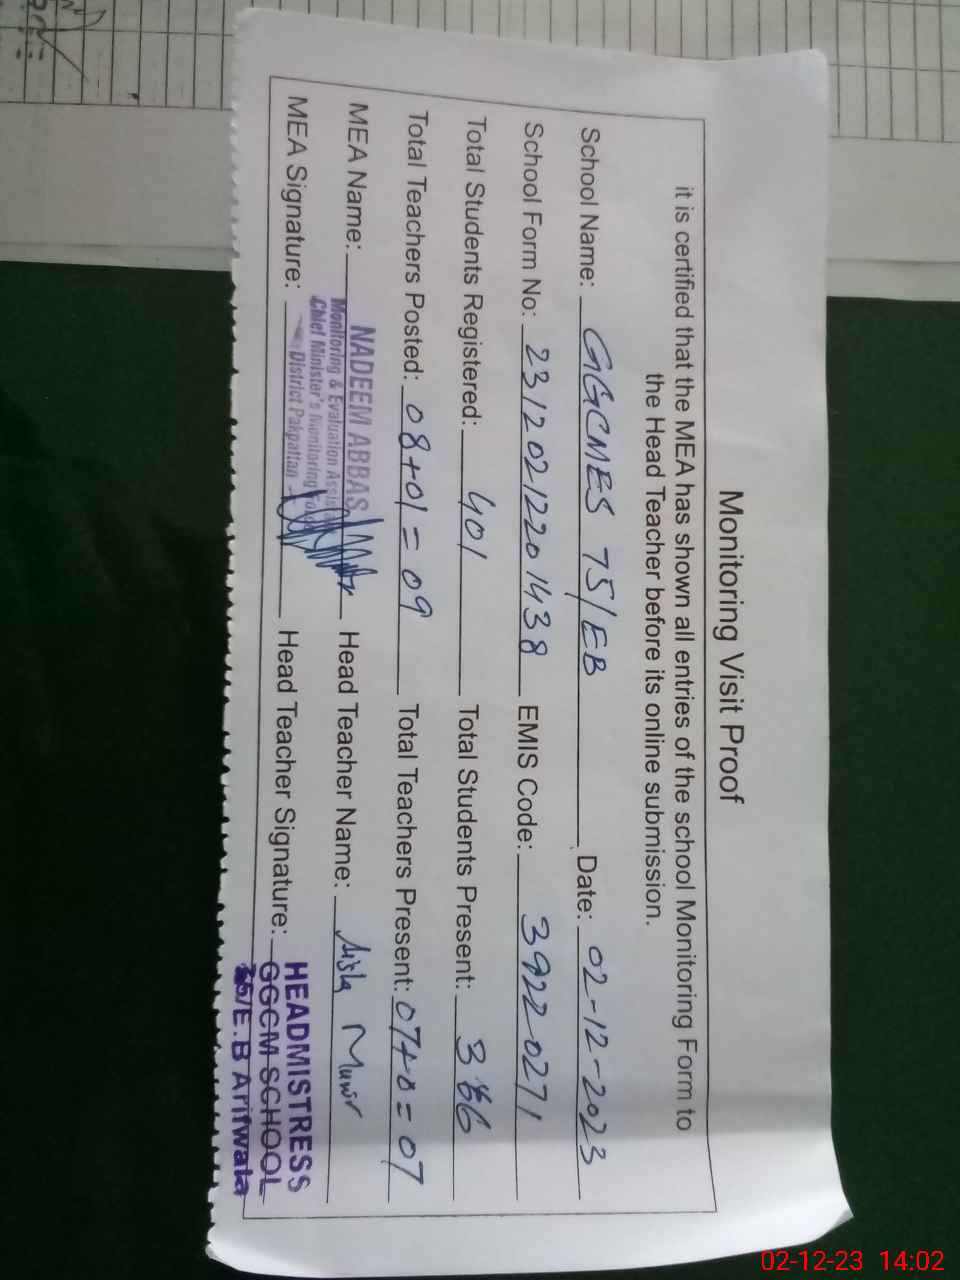 Monitoring Visit Proof
it is certified that the MEA has shown all entries of the school Monitoring Form to
the Head Teacher before its online submission.
School Name: GGCMES 75/EB Date: 02-12-2023
School Form No: 231202122201438 EMIS Code: 3922-0271
Total Students Registered: 401 Total Students Present: 386
Total Teachers Posted: 08+01=09 Total Teachers Present: 07+0=07
MEA Name: NADEEM ABBAS Head Teacher Name: Munir
Monitoring & Evaluation
Chief Minister's Monitoring
District Pakpattan
MEA Signature: Head Teacher Signature: HEADMISTRESS
GGCM SCHOOL
/E.B Arifwala
02-12-23 14:02